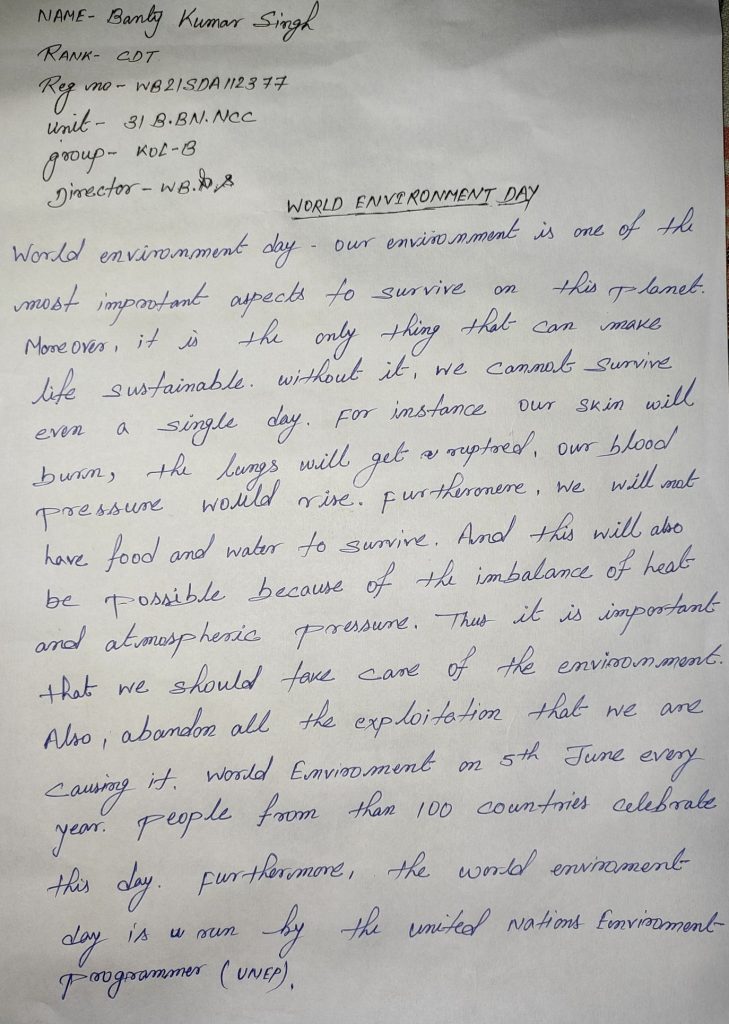 NAME- Banty Kumar Singh
RANK- CDT
Reg no - WB21SDA112377
Unit - 31 B.BN.NCC
group - KOL-B
Director - WB. & S
WORLD ENVIRONMENT DAY
World environment day - our environment is one of the
most improtant aspects to survive on this planet.
Moreover, it is the only thing that can make
life sustainable. without it, we cannot survive
even a single day. For instance our skin will
burn, the lungs will get ruptred, our blood
pressure would rise. furtheronere, we will not
have food and water to survive. And this will also
be possible because of the imbalance of heat
and atmospheric pressure. Thus it is important
that we should take care of the environment.
Also, abandon all the exploitation that we are
causing it. World Enviroment on 5th June every
year. people from than 100 countries celebrate
this day. furthermore, the world enviroment
day is run by the united Nations Enviroment
programmer (UNEP).